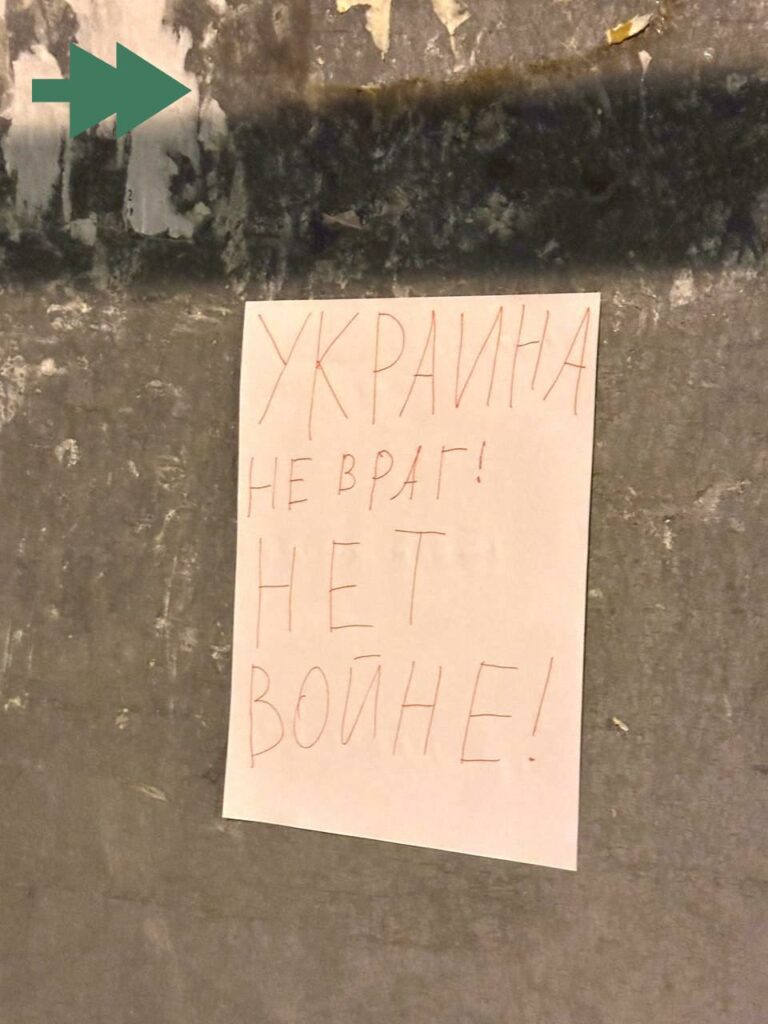 УКРАИНА
НЕ ВРАГ!
НЕТ
ВОЙНЕ!